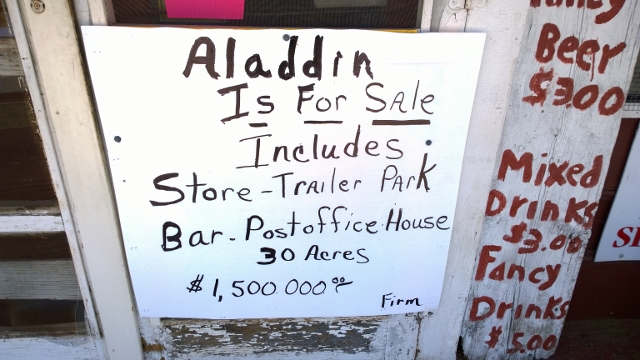 Aladdin
Is For Sale
Includes
Store - Trailer Park
Bar - Postoffice House
30 Acres
$1,500 000⁰⁰
Firm
Fancy
Beer
$3.00
Mixed
Drinks
$3.00
Fancy
Drinks
$5.00